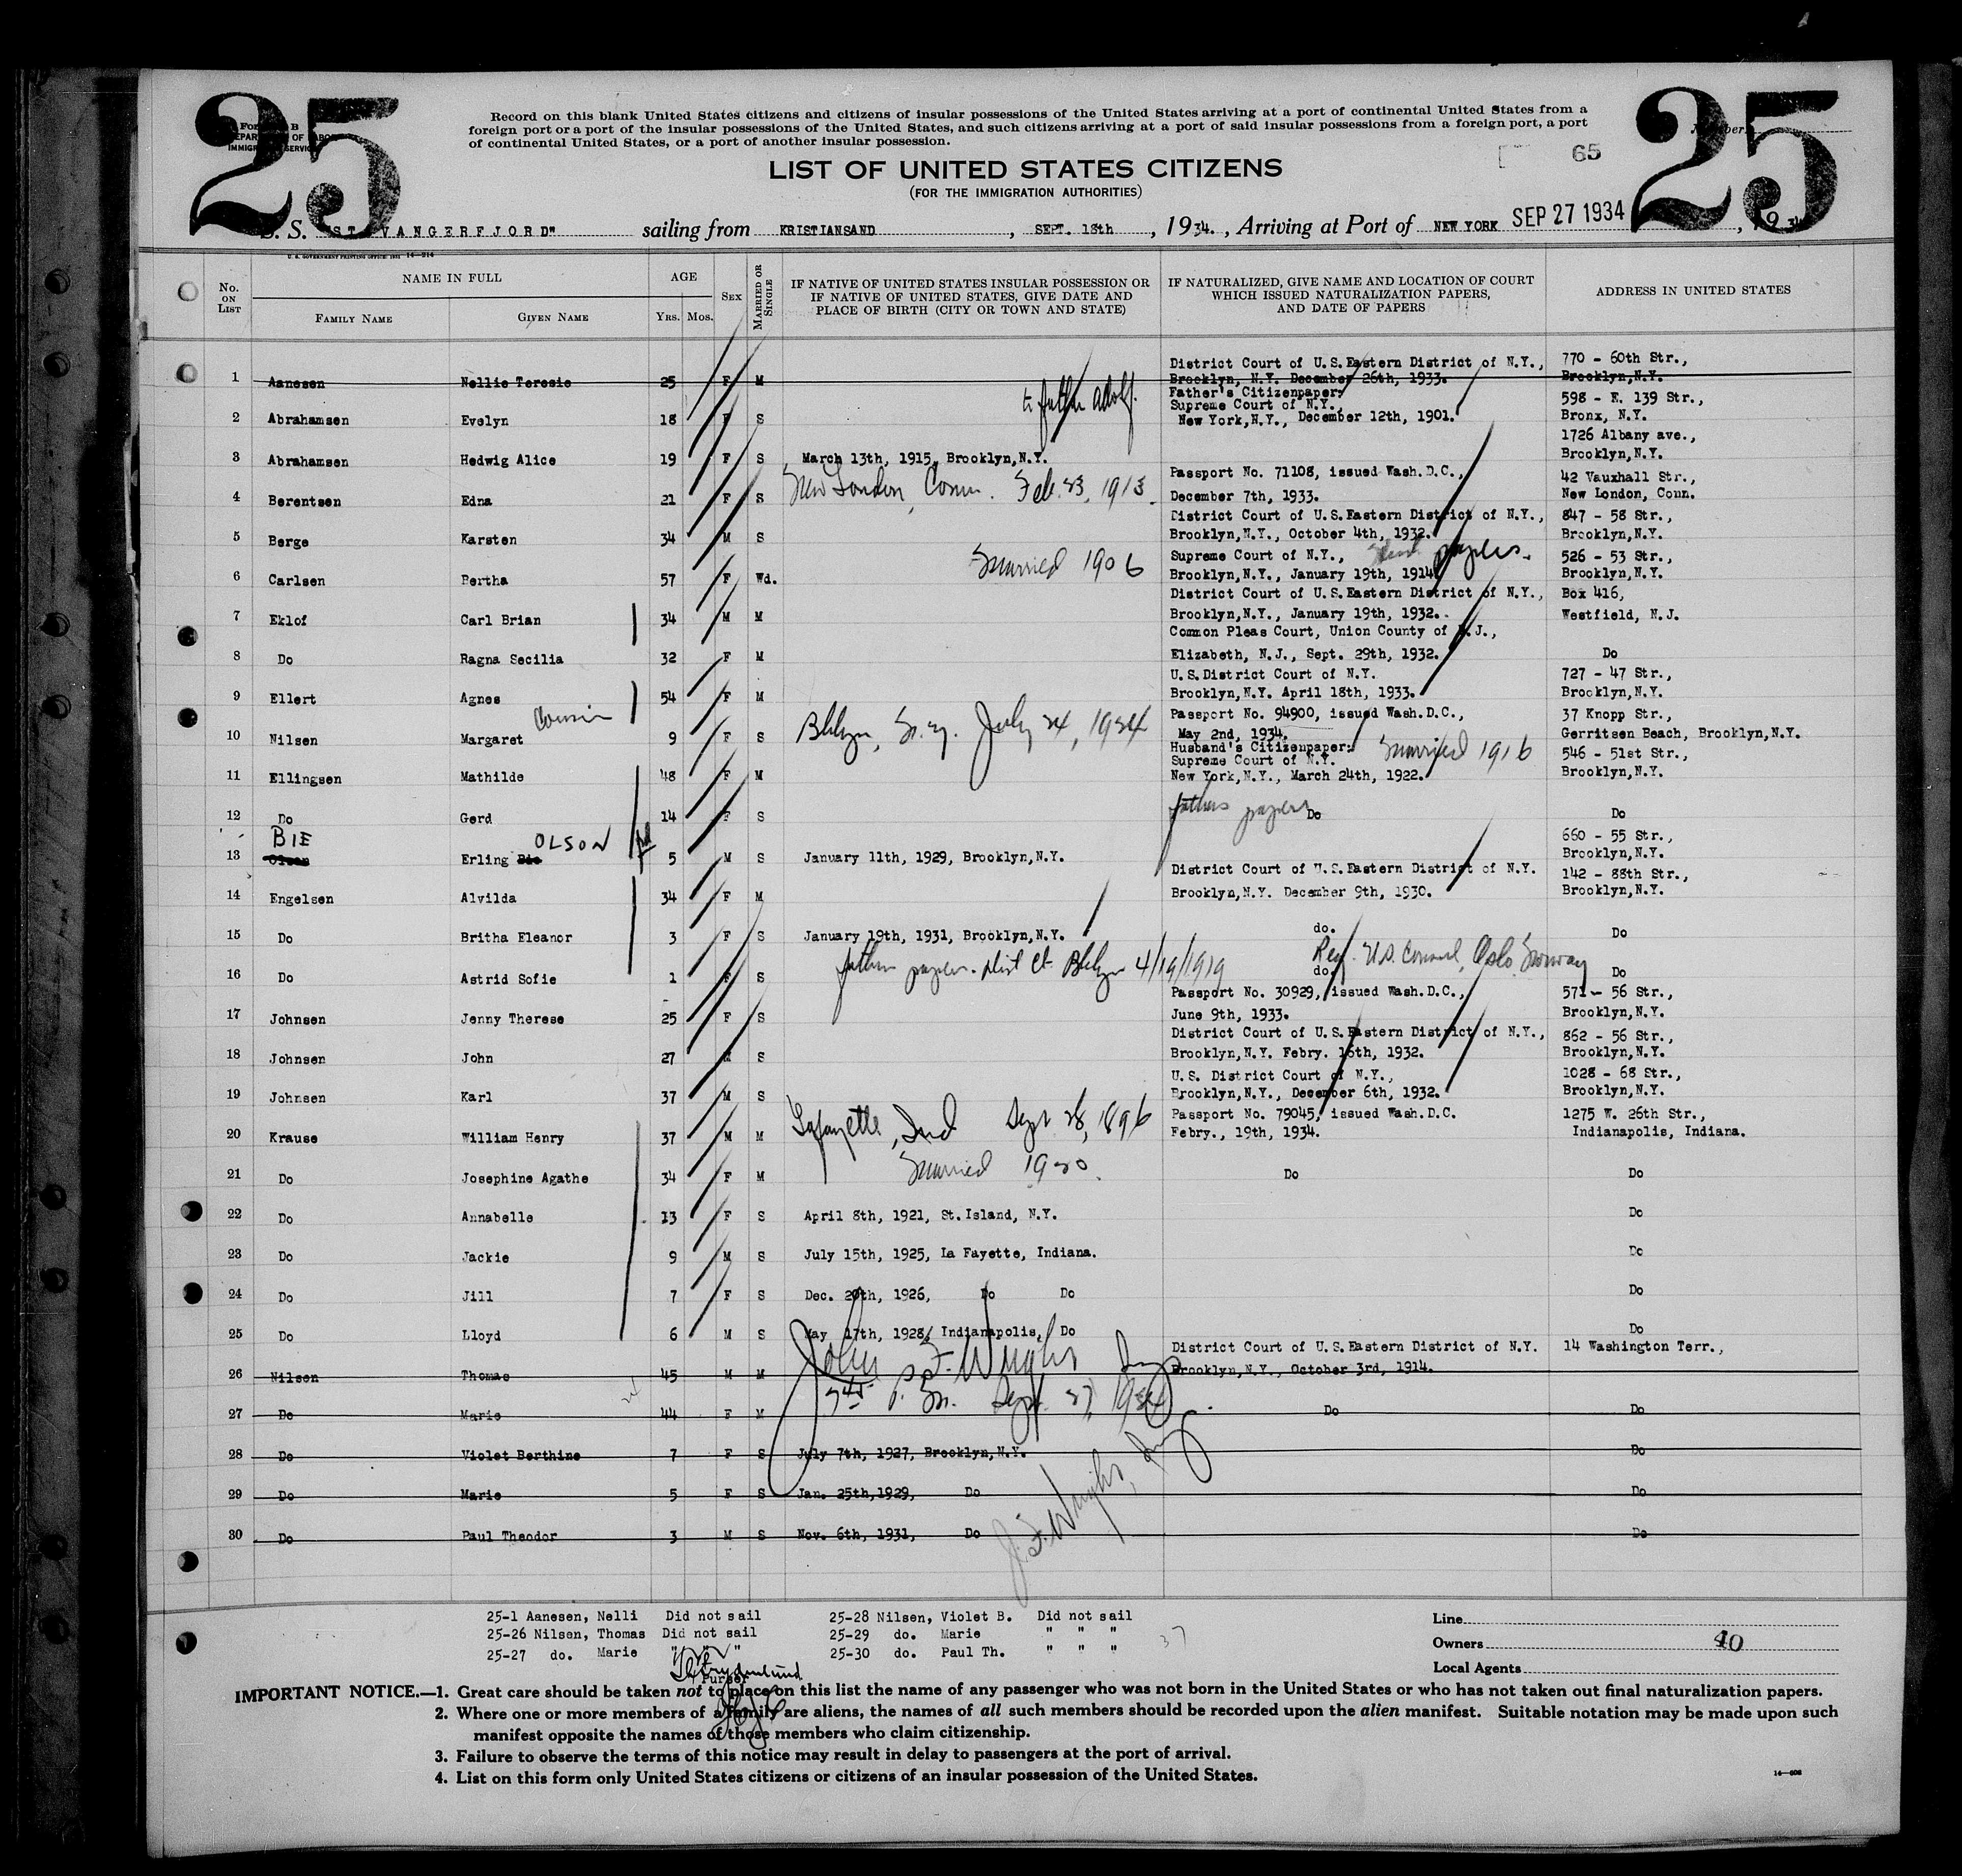 25
25
Record on this blank United States citizens and citizens of insular possessions of the United States arriving at a port of continental United States from a
foreign port or a port of the insular possessions of the United States, and such citizens arriving at a port of said insular possessions from a foreign port, a port
of continental United States, or a port of another insular possession.
65
LIST OF UNITED STATES CITIZENS
(FOR THE IMMIGRATION AUTHORITIES)
S. S. "STAVANGERFJORD" sailing from KRISTIANSAND, SEPT. 18th, 1934., Arriving at Port of NEW YORK SEP 27 1934, 1934
U. S. GOVERNMENT PRINTING OFFICE: 1931 14—214
No. ON LIST
NAME IN FULL
FAMILY NAME
GIVEN NAME
AGE
YRS. MOS.
SEX
MARRIED OR SINGLE
IF NATIVE OF UNITED STATES INSULAR POSSESSION OR
IF NATIVE OF UNITED STATES, GIVE DATE AND
PLACE OF BIRTH (CITY OR TOWN AND STATE)
IF NATURALIZED, GIVE NAME AND LOCATION OF COURT
WHICH ISSUED NATURALIZATION PAPERS,
AND DATE OF PAPERS
ADDRESS IN UNITED STATES
District Court of U.S.Eastern District of N.Y., 770 - 60th Str.,
1 Aanesen Nellie Teresie 25 F M Brooklyn, N.Y. December 26th, 1933. Brooklyn,N.Y.
to father Adolf. Father's Citizenpaper: 598 - E. 139 Str.,
Supreme Court of N.Y.,
2 Abrahamsen Evelyn 18 F S New York,N.Y., December 12th, 1901. Bronx, N.Y.
1726 Albany ave.,
3 Abrahamsen Hedwig Alice 19 F S March 13th, 1915, Brooklyn,N.Y. Brooklyn,N.Y.
Passport No. 71108, issued Wash.D.C., 42 Vauxhall Str.,
4 Berentsen Edna 21 F S New London, Conn. Feb. 23, 1913. December 7th, 1933. New London, Conn.
District Court of U.S.Eastern District of N.Y., 847 - 58 Str.,
5 Berge Karsten 34 M S Brooklyn,N.Y., October 4th, 1932. Brooklyn,N.Y.
Supreme Court of N.Y., papers. 526 - 53 Str.,
6 Carlsen Bertha 57 F Wd. Married 1906 Brooklyn,N.Y., January 19th, 1914. Brooklyn,N.Y.
District Court of U.S.Eastern District of N.Y., Box 416,
7 Eklof Carl Brian 34 M M Brooklyn,N.Y., January 19th, 1932. Westfield, N.J.
Common Pleas Court, Union County of N.J.,
8 Do Ragna Secilia 32 F M Elizabeth, N.J., Sept. 29th, 1932. Do
U.S.District Court of N.Y. 727 - 47 Str.,
9 Ellert Agnes 54 F M Brooklyn,N.Y. April 18th, 1933. Brooklyn,N.Y.
Cousin Passport No. 94900, issued Wash.D.C., 37 Knopp Str.,
10 Nilsen Margaret 9 F S Bklyn, N.Y. July 24, 1924 May 2nd, 1934. Gerritsen Beach, Brooklyn,N.Y.
Husband's Citizenpaper: Married 1916 546 - 51st Str.,
Supreme Court of N.Y.
11 Ellingsen Mathilde 48 F M New York,N.Y., March 24th, 1922. Brooklyn,N.Y.
12 Do Gerd 14 F S fathers papers Do Do
BIE OLSON 660 - 55 Str.,
13 Olsen Erling Bie 5 M S January 11th, 1929, Brooklyn,N.Y. Brooklyn,N.Y.
District Court of U.S.Eastern District of N.Y. 142 - 88th Str.,
14 Engelsen Alvilda 34 F M Brooklyn,N.Y. December 9th, 1930. Brooklyn,N.Y.
15 Do Britha Eleanor 3 F S January 19th, 1931, Brooklyn,N.Y. do. Do
father papers. Dist Ct. Bklyn 4/19/1919 Reg. U.S. Consul, Oslo Norway
16 Do Astrid Sofie 1 F S do. Do
Passport No. 30929, issued Wash.D.C., 571 - 56 Str.,
17 Johnsen Jenny Therese 25 F S June 9th, 1933. Brooklyn,N.Y.
District Court of U.S.Eastern District of N.Y., 862 - 56 Str.,
18 Johnsen John 27 M S Brooklyn,N.Y. Febry. 16th, 1932. Brooklyn,N.Y.
U.S. District Court of N.Y., 1028 - 68 Str.,
19 Johnsen Karl 37 M S Brooklyn,N.Y., December 6th, 1932. Brooklyn,N.Y.
Passport No. 79045, issued Wash.D.C. 1275 W. 26th Str.,
20 Krause William Henry 37 M M Lafayette, Ind Sept 28, 1896 Febry., 19th, 1934. Indianapolis, Indiana.
21 Do Josephine Agathe 34 F M Married 1920. Do Do
22 Do Annabelle 13 F S April 8th, 1921, St.Island, N.Y. Do
23 Do Jackie 9 M S July 15th, 1925, La Fayette, Indiana. Do
24 Do Jill 7 F S Dec. 20th, 1926, Do Do Do
25 Do Lloyd 6 M S May 17th, 1928, Indianapolis, Do Do
District Court of U.S.Eastern District of N.Y. 14 Washington Terr.,
26 Nilsen Thomas 45 M M Brooklyn,N.Y., October 3rd, 1914.
27 Do Marie 44 F M Sept. 27, 1934 Do Do
28 Do Violet Berthine 7 F S July 7th, 1927, Brooklyn,N.Y. Do
29 Do Marie 5 F S Jan. 25th,1929, Do Do
30 Do Paul Theodor 3 M S Nov. 6th, 1931, Do Do
25-1 Aanesen, Nelli Did not sail 25-28 Nilsen, Violet B. Did not sail
25-26 Nilsen, Thomas Did not sail 25-29 do. Marie " " "
25-27 do. Marie " " " 25-30 do. Paul Th. " " "
37
Purser
Line
Owners 40
Local Agents
IMPORTANT NOTICE.—1. Great care should be taken not to place on this list the name of any passenger who was not born in the United States or who has not taken out final naturalization papers.
2. Where one or more members of a family are aliens, the names of all such members should be recorded upon the alien manifest. Suitable notation may be made upon such
manifest opposite the names of those members who claim citizenship.
3. Failure to observe the terms of this notice may result in delay to passengers at the port of arrival.
4. List on this form only United States citizens or citizens of an insular possession of the United States.